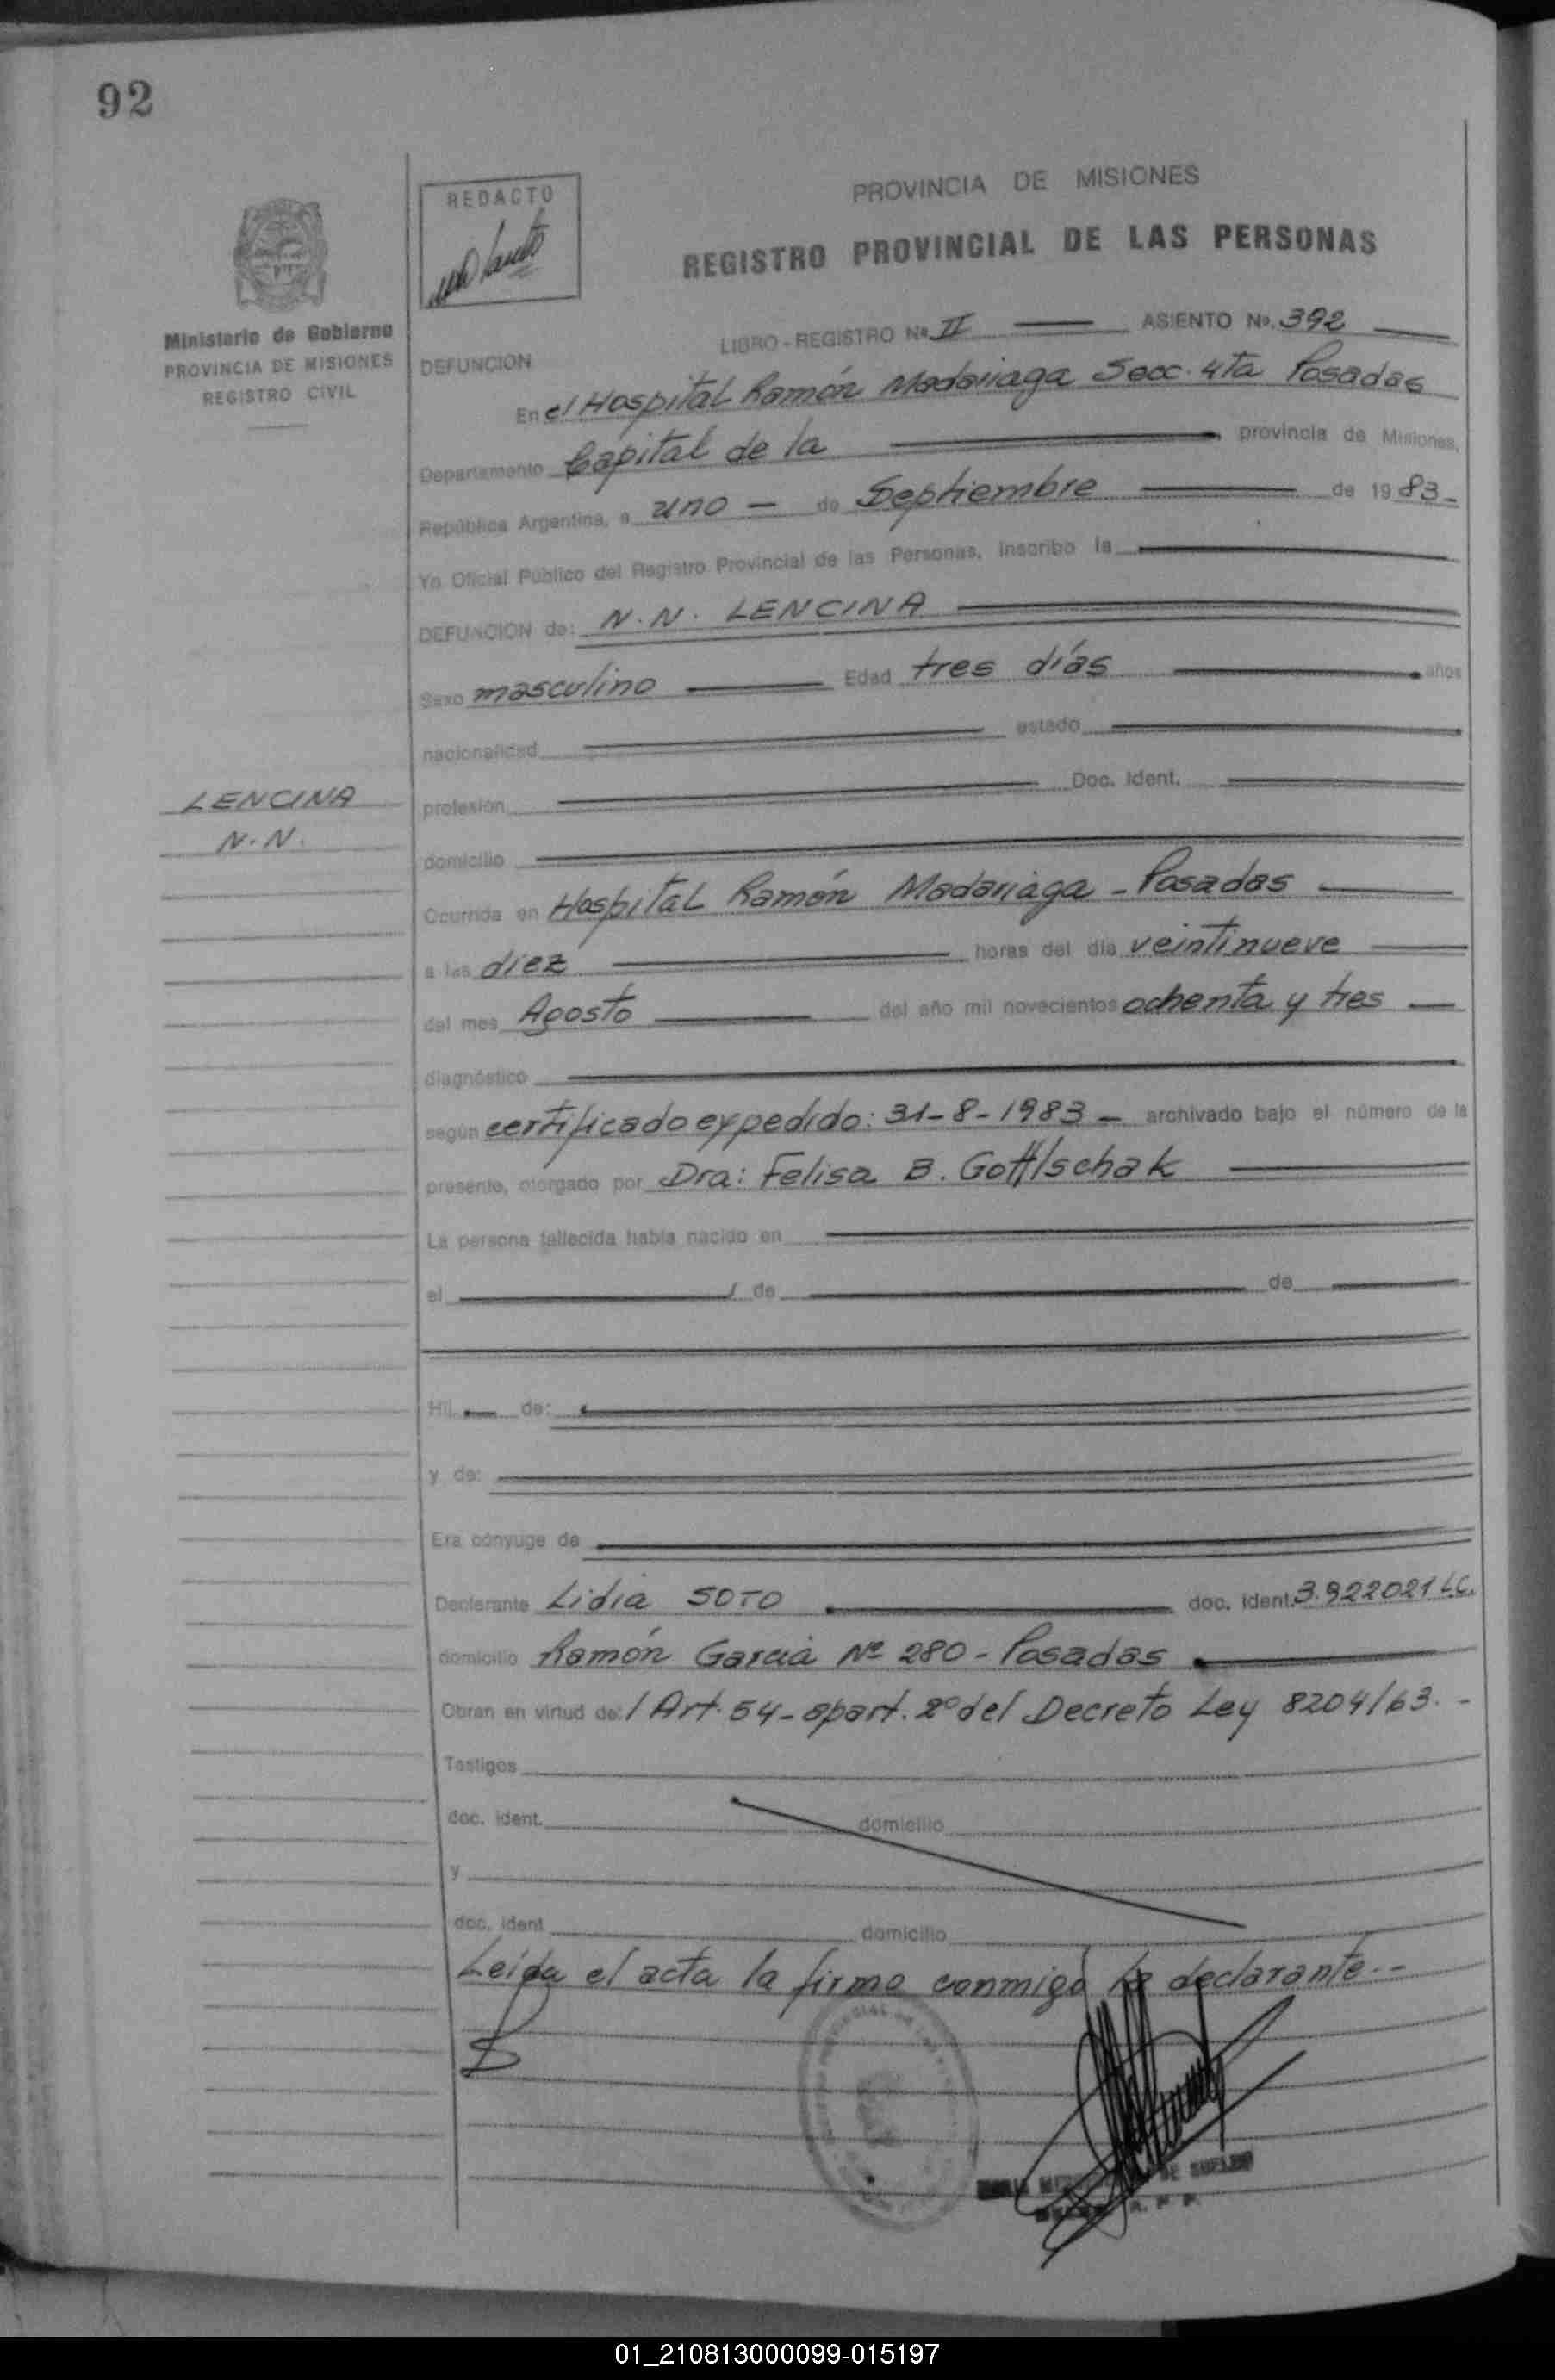 92
REDACTO
PROVINCIA DE MISIONES
REGISTRO PROVINCIAL DE LAS PERSONAS
Ministerio de Gobierno
PROVINCIA DE MISIONES
REGISTRO CIVIL
LIBRO - REGISTRO Nº II ASIENTO Nº. 392
DEFUNCION
En el Hospital Ramón Madariaga Secc. 4ta Posadas
Departamento Capital de la provincia de Misiones,
República Argentina, a uno - de Septiembre de 1983-
Yo Oficial Público del Registro Provincial de las Personas, inscribo la
DEFUNCION de: N.N. LENCINA
Sexo masculino Edad tres días años
nacionalidad estado
LENCINA
N.N.
profesión Doc. Ident.
domicilio
Ocurrida en Hospital Ramón Madariaga - Posadas
a las diez horas del día veintinueve
del mes Agosto del año mil novecientos ochenta y tres
diagnóstico
según certificado expedido: 31-8-1983 - archivado bajo el número de la
presente, otorgado por Dra: Felisa B. Gottlschak
La persona fallecida había nacido en
el de de
Hij de:
y de:
Era cónyuge de
Declarante Lidia SOTO doc. ident. 3.922021 L.C.
domicilio Ramón Garcia Nº 280 - Posadas
Obran en virtud de: / Art. 54 - apart. 2º del Decreto Ley 8204/63. -
Testigos
doc. ident. domicilio
y
doc. ident domicilio
Leída el acta la firma conmigo la declarante. -
DE SUELDO
01_210813000099-015197